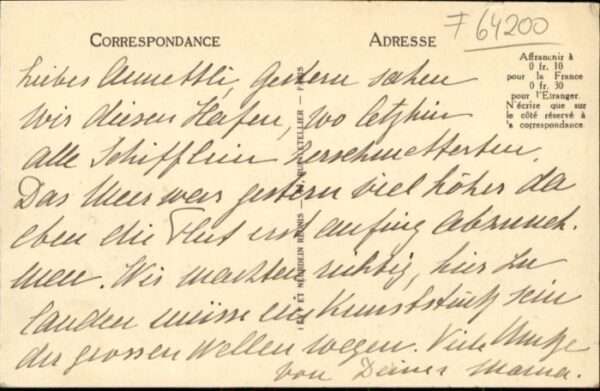 F 64200
CORRESPONDANCE
ADRESSE
Affranchir à
0 fr. 10
pour la France
0 fr. 30
pour l'Etranger.
N'écrire que sur
le côté réservé à
la correspondance.
Liebes Annettli, Gestern sahen
wir diesen Hafen, wo letzthin
alle Schifflein zerschmetterten.
Das Meer war gestern viel höher da
eben die Flut erst anfing abzuneh-
men. Wir merkten richtig, hier zu
landen müsse ein Kunststück sein
der grossen Wellen wegen. Viele
von Deiner Mama.
NEURDEIN RÉUNIS